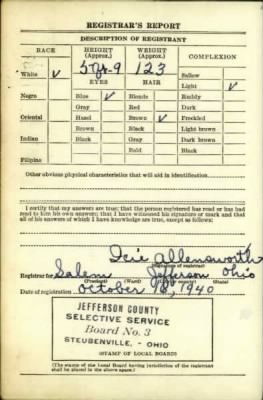 REGISTRAR'S REPORT
DESCRIPTION OF REGISTRANT
RACE HEIGHT (Approx.) WEIGHT (Approx.) COMPLEXION
5 ft-9 123
White ✓ EYES HAIR Sallow
Light ✓
Negro Blue ✓ Blonde Ruddy
Gray Red Dark
Oriental Hazel Brown ✓ Freckled
Brown Black Light brown
Indian Black Gray Dark brown
Bald Black
Filipino
Other obvious physical characteristics that will aid in identification
I certify that my answers are true; that the person registered has read or has had
read to him his own answers; that I have witnessed his signature or mark and that
all of his answers of which I have knowledge are true, except as follows:
Allensworth
(Signature of registrar)
Registrar for Salem Jefferson Ohio
(Precinct) (Ward) (State)
Date of registration October 16, 1940
JEFFERSON COUNTY
SELECTIVE SERVICE
Board No. 3
STEUBENVILLE, - OHIO
(STAMP OF LOCAL BOARD)
(The stamp of the Local Board having jurisdiction of the registrant
shall be placed in the above space.)